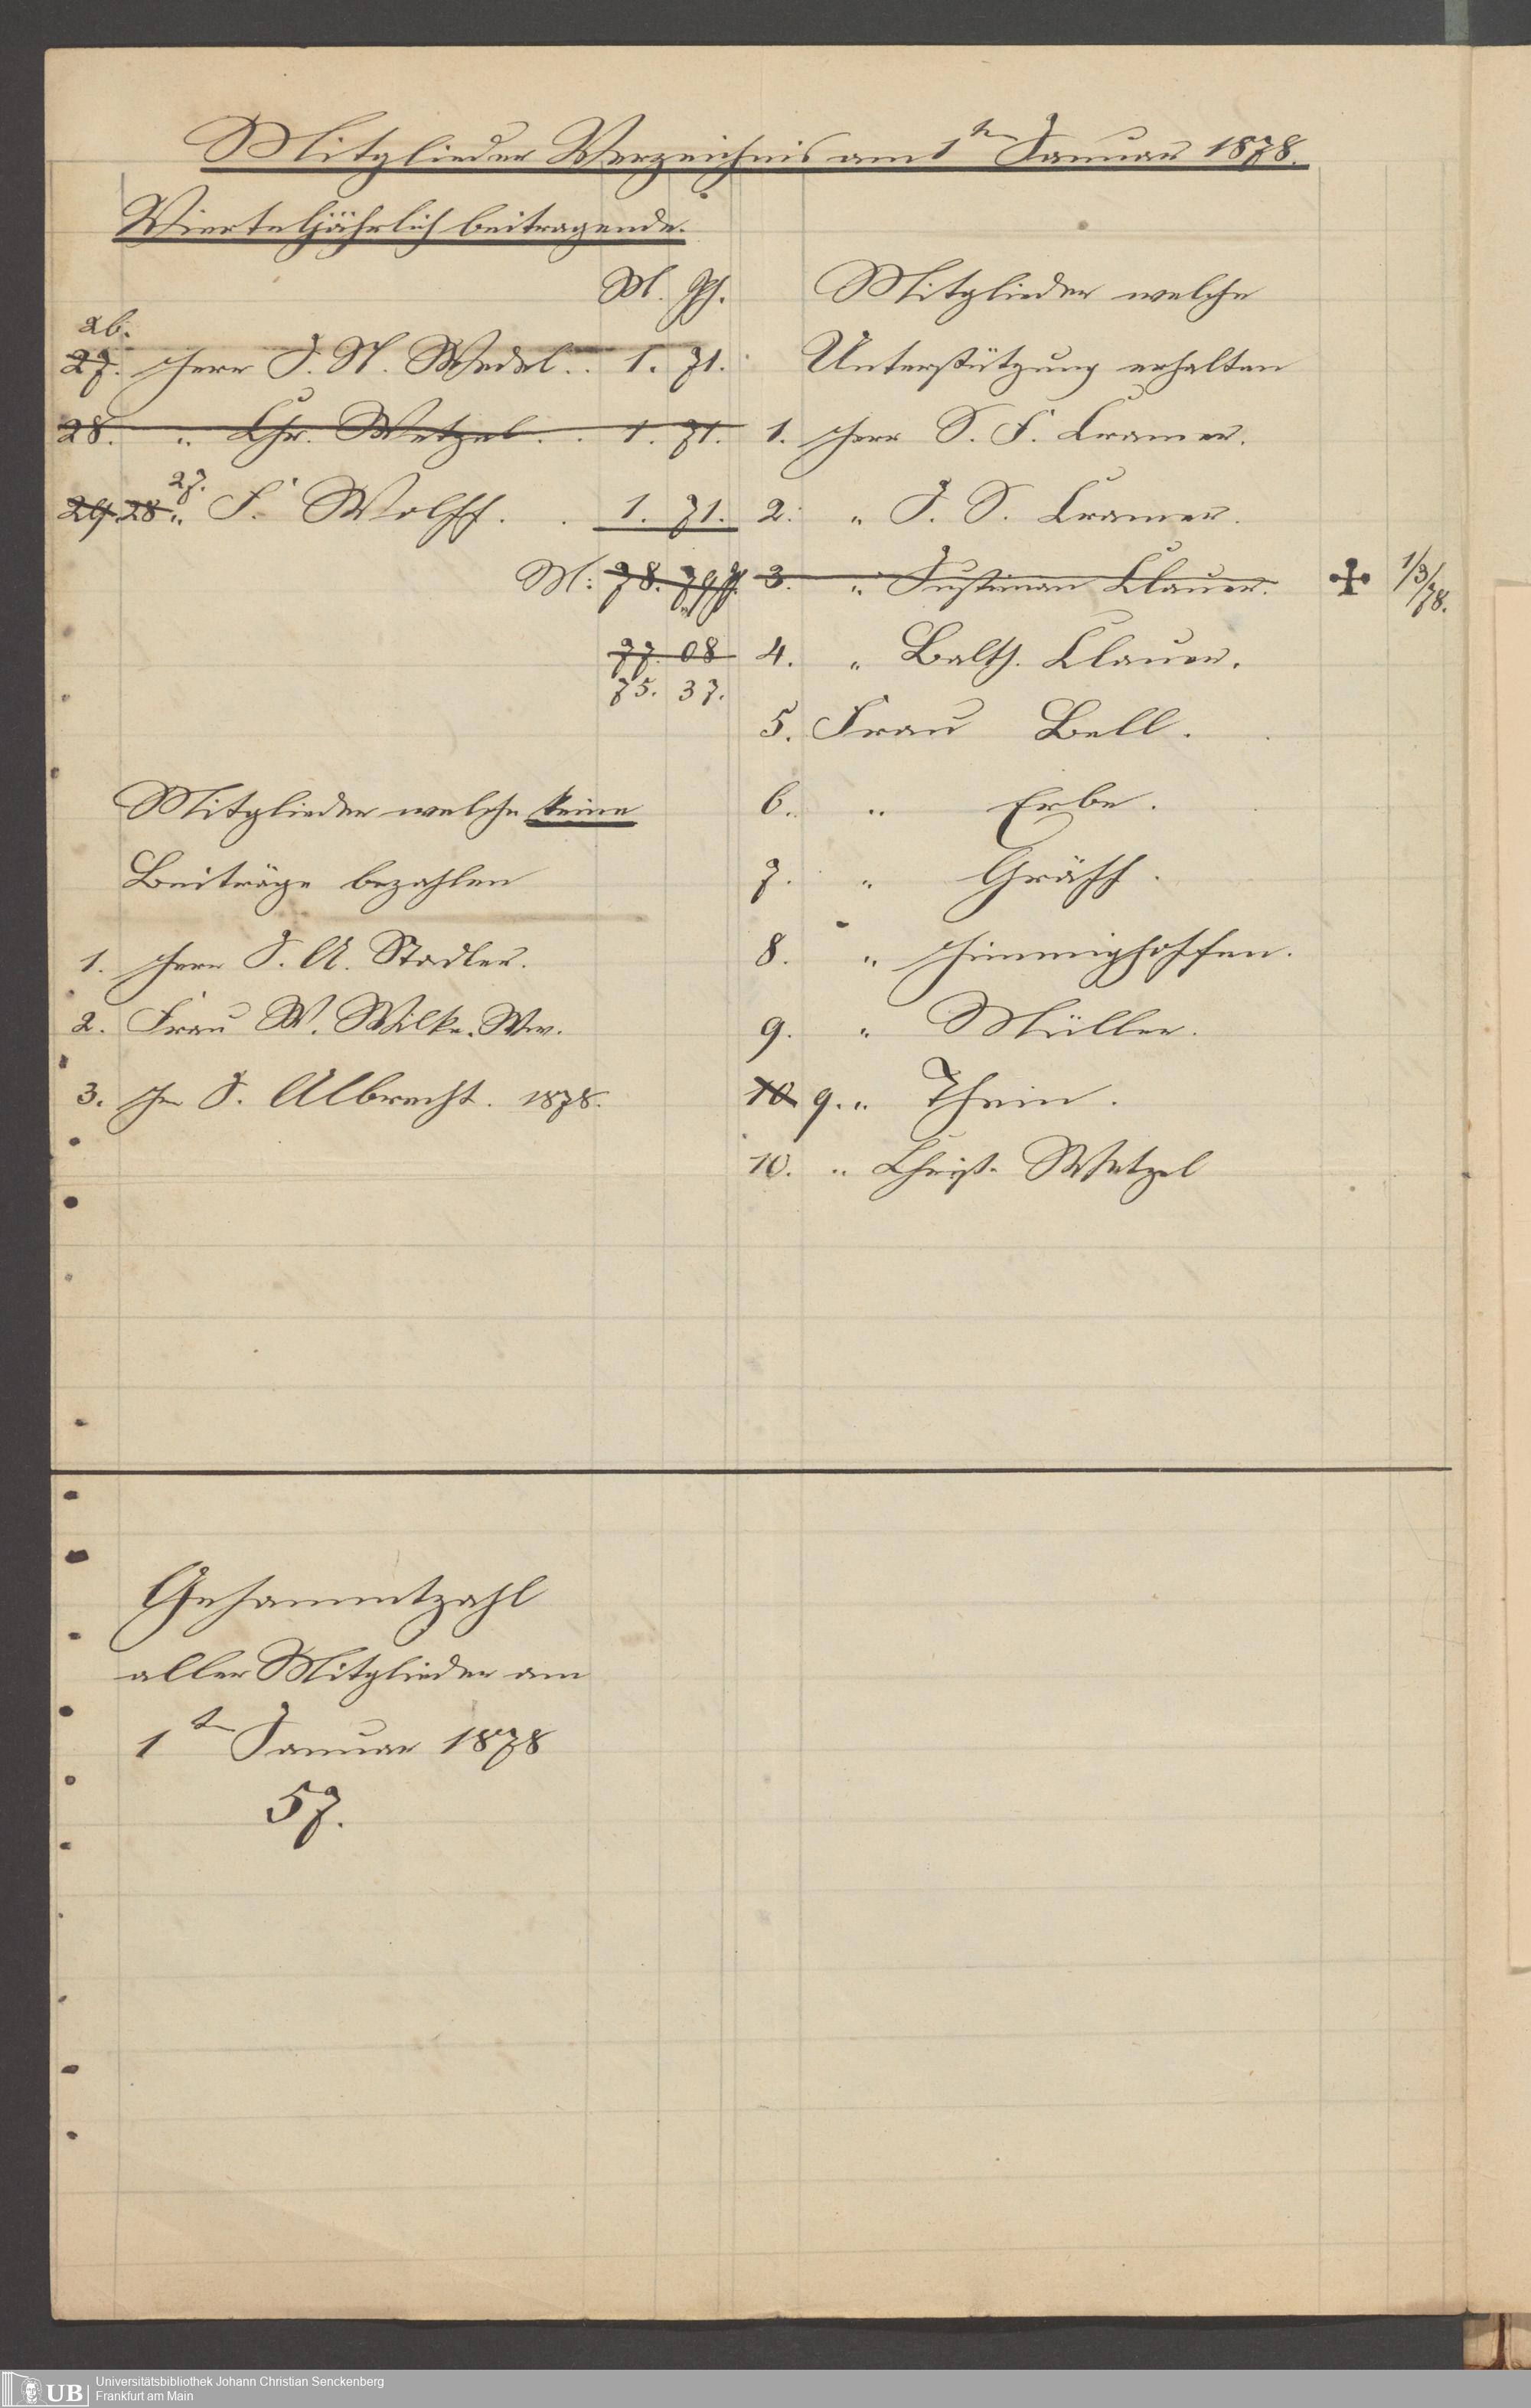 Mitglieder Verzeichnis am 1ten Januar 1878.
Vierteljährlich beitragende.
M. Pf.
26.
27. Herr J. N. Wedel.. 1. 71.
28. " Chr. Wetzel.. 1. 71.
27.
29. 28 " F. Wolff. . 1. 71.
M: 78. 79 Pf.
77. 08
75. 37.
Mitglieder welche keine
Beiträge bezahlen
1. Herr J. A. Stadler.
2. Frau W. Wilke. Ww.
3. Hr J. Albrecht. 1878.
Mitglieder welche
Unterstützung erhalten
1. Herr S. F. Cramer.
2. " J. S. Cramer.
3. " Justinian Clauer. 1/3/78.
4. " Balth. Clauer.
5. Frau Bell.
6. " Erbe.
7. " Gräff.
8. " Himmighoffen.
9. " Müller.
10 9. " Thein.
10. " Christ. Wetzel
Gesammtzahl
aller Mitglieder am
1ten Januar 1878
57.
UB
Universitätsbibliothek Johann Christian Senckenberg
Frankfurt am Main